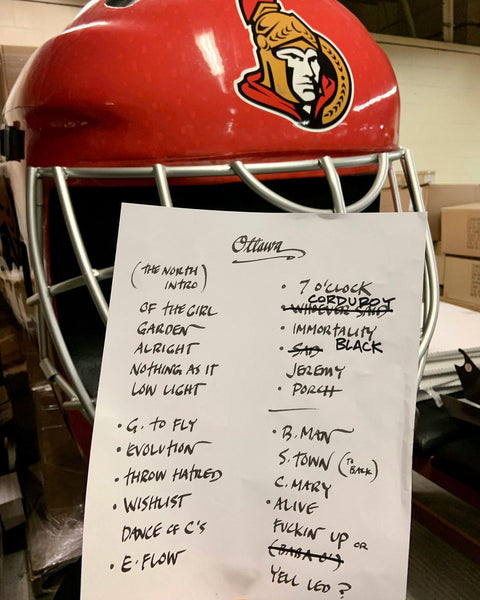 Ottawa
(THE NORTH INTRO)
OF THE GIRL
GARDEN
ALRIGHT
NOTHING AS IT
LOW LIGHT
• G. TO FLY
• EVOLUTION
• THROW HATRED
• WISHLIST
DANCE OF C'S
• E. FLOW
• 7 O'CLOCK
CORDUROY
• WHOEVER SAID
• IMMORTALITY
• SAD BLACK
JEREMY
• PORCH
• B. MAN
S. TOWN (TO BACK)
C. MARY
• ALIVE
FUCKIN UP OR
(BABA O'S)
YELL LEO?